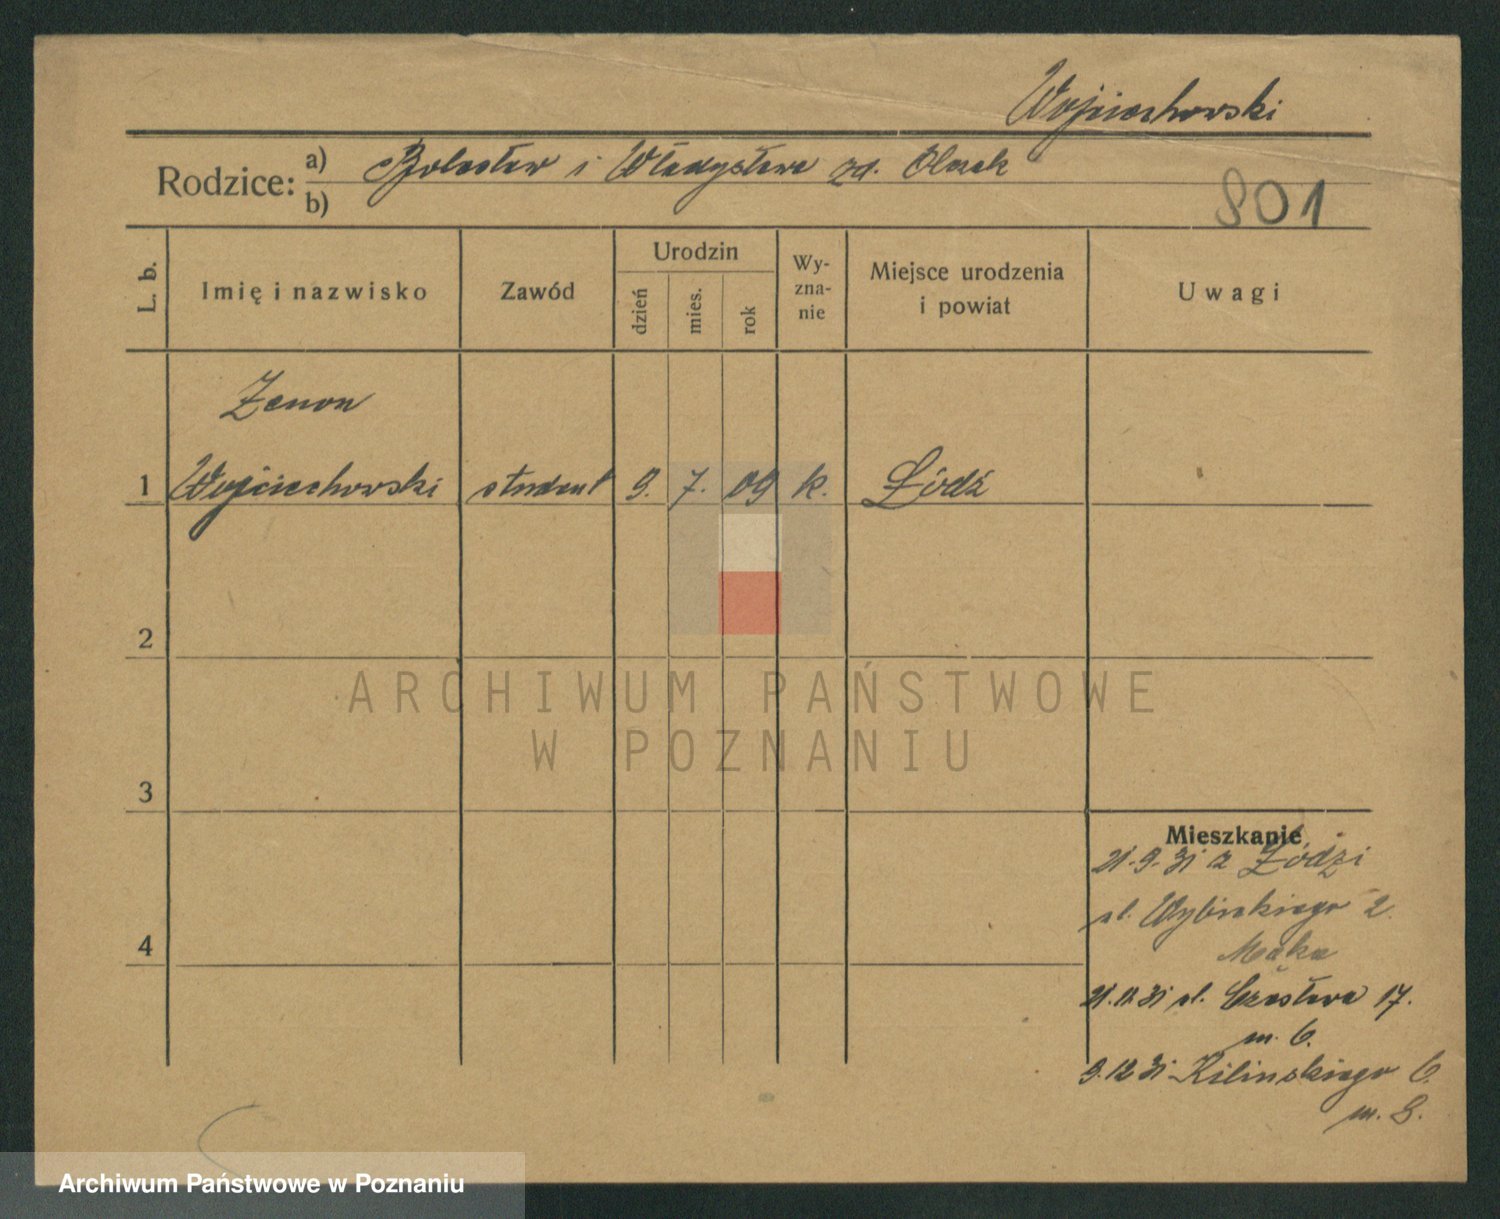 Wojciechowski
Rodzice: a) Bolesław i Władysława zd. Olczak
b)
801
L. b.
Imię i nazwisko
Zawód
Urodzin
dzień
mies.
rok
Wy-
zna-
nie
Miejsce urodzenia
i powiat
Uwagi
Zenon
1 Wojciechowski student 9. 7. 09 k. Łódź
2
3
4
Mieszkanie
21.9.31 z Łodzi
ul. Wybickiego 2
Mąka
ul. Czesława 17.
m. 6.
9.12.31 Kilinskiego 6
m.
ARCHIWUM PAŃSTWOWE
W POZNANIU
Archiwum Państwowe w Poznaniu